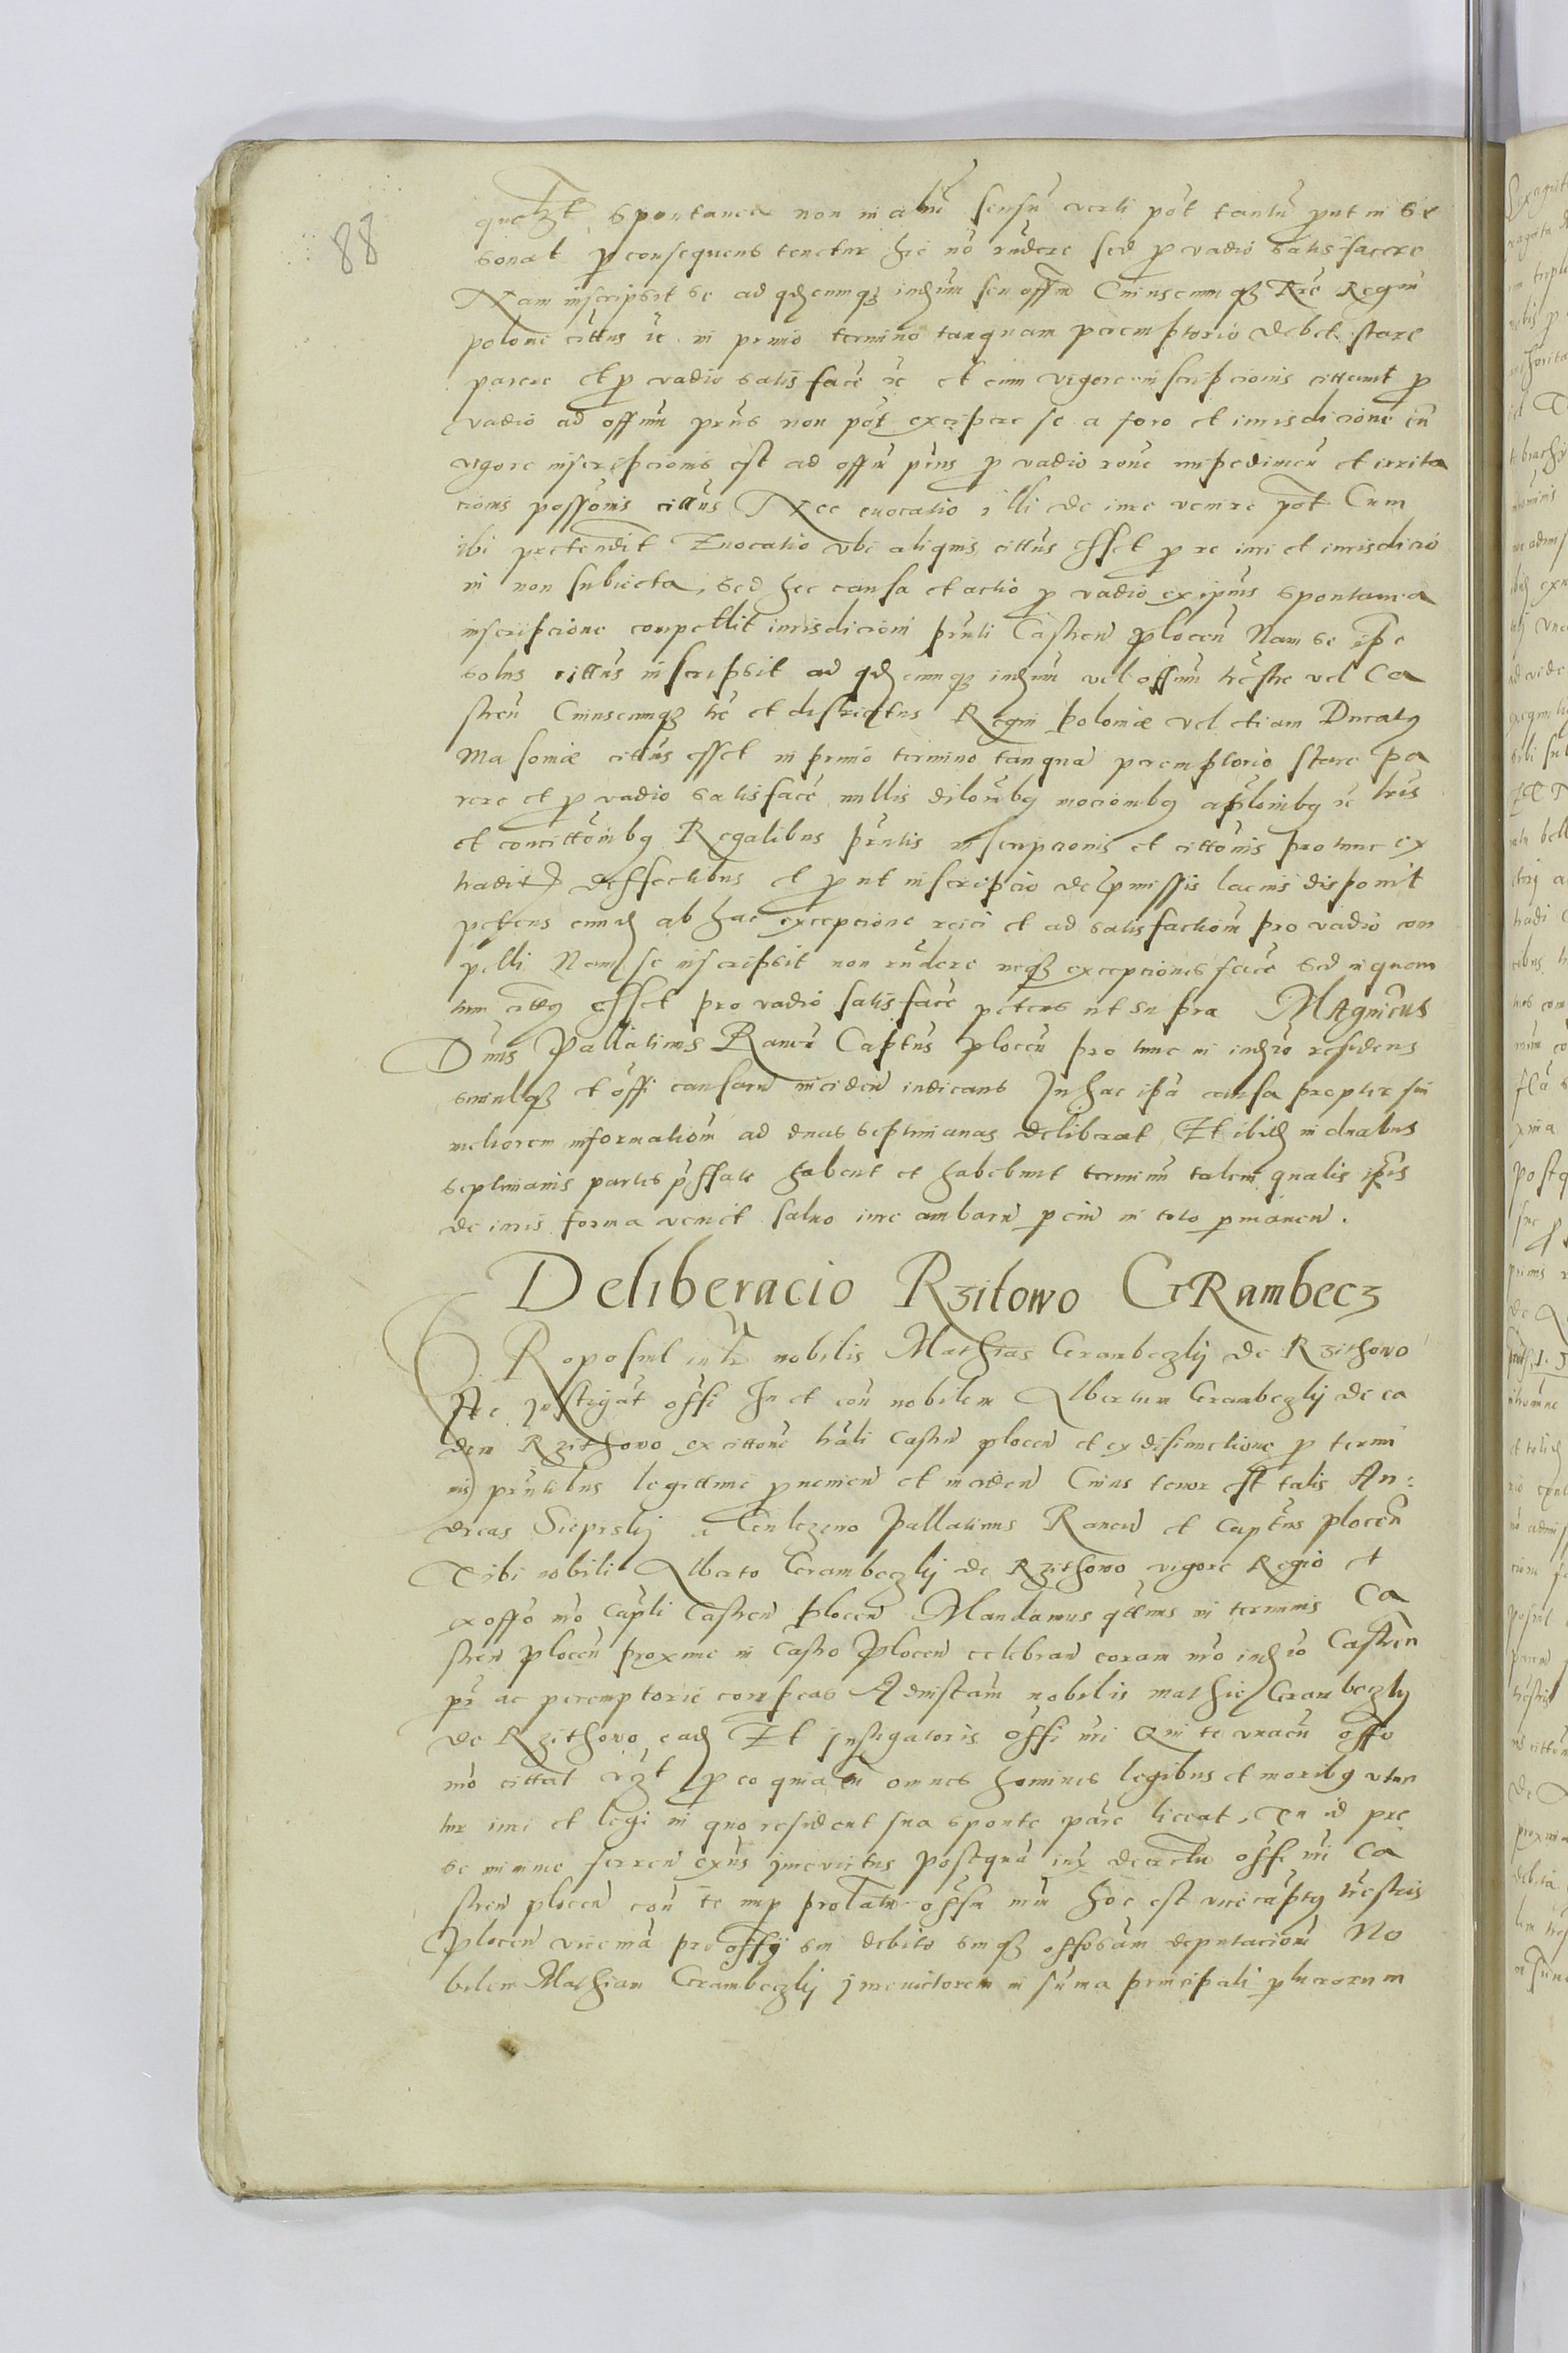 88
spontanea non in aliu sensu verti pot tantu put in se
sonat p consequens tenetur hic no rndere sed p vadio satisfacere
Nam inscripsit se ad qdcumqz indm seu offm Cuiuscumqz Rre Regni
polone cittus ic in primo termino tanquam peremptorio debet stare
parere et p vadio satisface ic et cum vigore inscripcionis p
vadio ad offum pns non pot excipere se a foro et iurisdicione cu
vigore inscripcionis est ad offm pns p vadio rone impedimen et irrita
cionis possonis cittus Nec euocatio illi de iure venire pot Cum
ibi pretendit Euocatio vbi aliquis cittus esset p re iuri et iurisdicio
ni non subiecta, sed hec causa et actio p vadio ex ipius spontanea
inscripcione compellit iurisdicioni pnti Castren plocen Nam se ipe
solus cittus inscripsit ad qdcumqz indm vel offum trestre vel Ca
stren Cuiuscumqz tre et districtus Regni poloniæ vel etiam Ducatq
Masoviæ cittus esset in primo termino tanqua peremptorio stare pa
rere et p vadio satisface nullis dilonibq mocionibq aplonibq ic tris
et concittonibq Regalibus pntis inscripcionis et cittonis pro tunc ex
deffectibus et put inscripcio de pmissis lacius disponit
petens eund ab hac excepcione reici et ad satisfactiom pro vadio com
pelli Nam se inscripsit non rndere neqz excepciones face sed in quan
tum cittq esset pro vadio satisface petens ut supra Magnicus
Dnus Pallatinus Raven Captus plocen pro tunc in indio residens
simulqz et offi causam inciden indicans In hac ipa causa propter sui
meliorem informatiom ad duas septimanas deliberat, Et ibid in duabus
septimanis partes pffate habent et habebunt terminu talem qualis ipis
de iuris forma venit saluo iure ambaru pciu in toto pmanen.
Deliberacio Rzitowo GRambecz
PRoposuit nobilis Mathias Grambeczky de Rzithowo
Ac Instigat offi In et con nobilem Albertum Grambeczky de ea
dem Rzithowo ex cittone trali Castren plocen et ex disiunctione p termi
nis pntibus legittime pueniem et inciden Cuius tenor est talis An:
dreas Sieprsky a Gulczewo Pallatinus Raven et Captus plocen
Tibi nobili Alberto Grambeczky de Rzithowo vigore Regio et
ex offo mo Capli Castren plocen Mandamus qtenus in terminis Ca
stren plocen proxime in Castro Plocen celebran coram nro indio Castren
pr ac peremptorie compeas Ad instam nobilis mathie Grambeczky
de Rzithowo ead Et Instigatoris offi nri Qui te vnacu offo
nro cittat p eo quia cu omnes homines legibus et moribq vtun
tur iure et legi in quo resident sua sponte pare liceat, Tu id pre
se minime ferren exns Jurevictus postqua iux decretu offi nri Ca
stren plocen con te nup prolatu offm nrm hoc est vicecaptq trestris
Plocen vice ma pro offy sui debito suiqz offosam deputaciom No
bilem Mathiam Grambeczky Jurevictorem in suma principali plucrorum